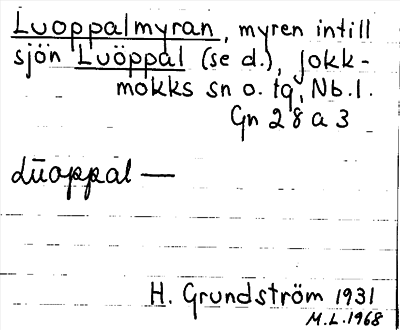 Luoppalmyran, myren intill
sjön Luöppal (se d.), Jokk-
mokks sn o. tg, Nb.l.
Gn 28 a 3
lūoppal —
H. Grundström 1931
M.L.1968